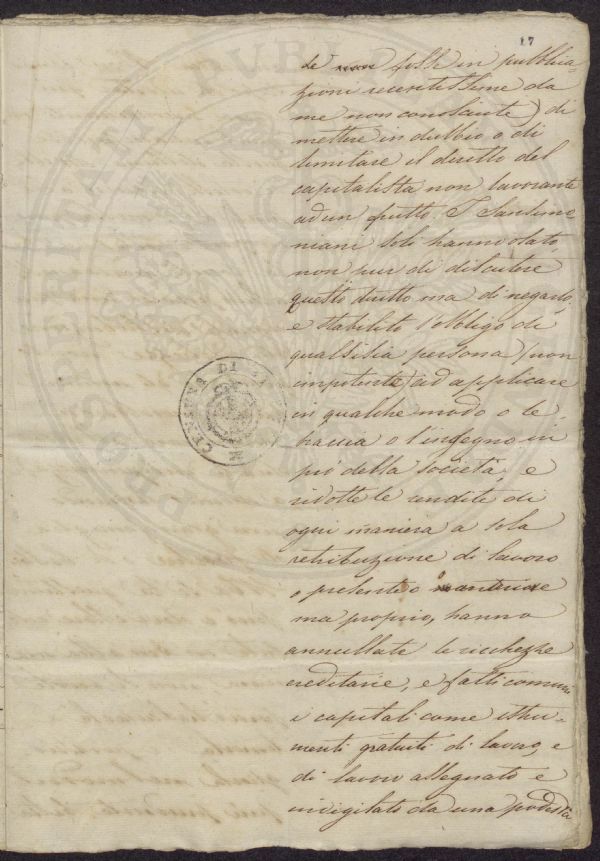 17
se non fosse in pubblica-
zioni recentissime da
me non conosciute) di
mettere in dubbio o di
limitare il diritto del
capitalista non lavorante
ad un frutto. I Sansimo
niani soli hanno osato
non pur di discutere
questo diritto ma di negarlo;
e stabilito l'obbligo di
qualsisia persona (non
impotente) ad applicare
in qualche modo o le
braccia o l'ingegno in
prò della società, e
ridotte le rendite di
ogni maniera a sola
retribuzione di lavoro
o presente o anteriore
ma proprio, hanno
annullate le ricchezze
ereditarie, e fatti comuni
i capitali come istru-
menti gratuiti di lavoro, e
di lavoro assegnato e
indigitato da una podestà
CENSURA DI
PROSPERITATI PUBL